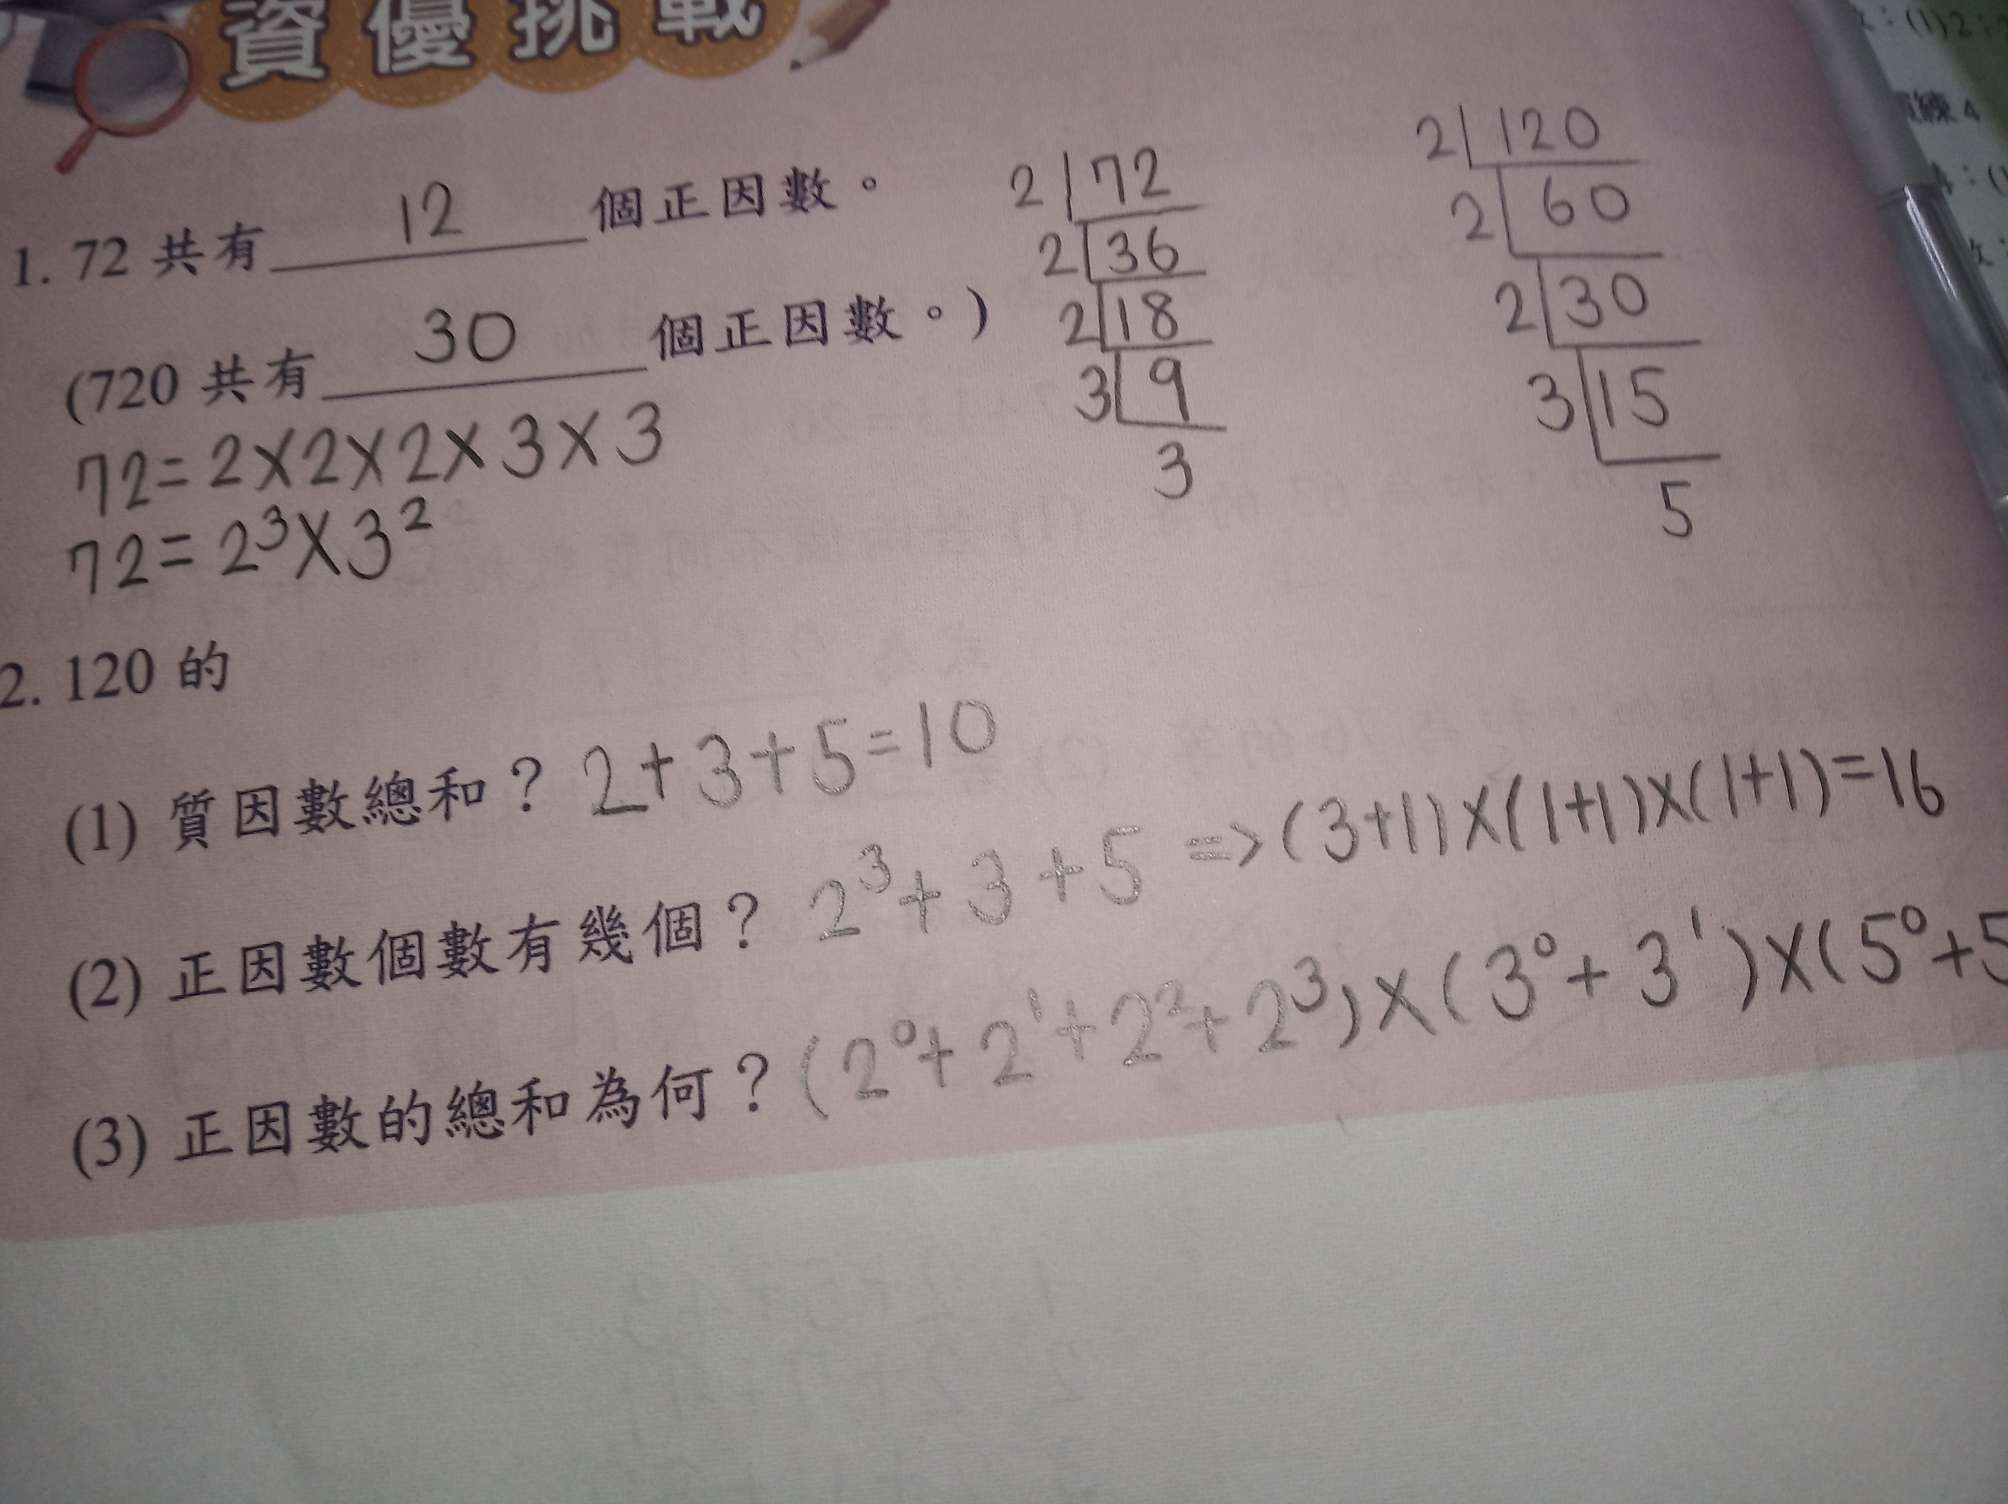 資優挑戰
1. 72 共有 12 個正因數。
(720 共有 30 個正因數。)
72=2×2×2×3×3
72=2³×3²
2 72
2 36
2 18
3 9
3
2 120
2 60
2 30
3 15
5
2. 120 的
(1) 質因數總和？ 2+3+5=10
(2) 正因數個數有幾個？ 2³+3+5 => (3+1)×(1+1)×(1+1)=16
(3) 正因數的總和為何？ (2⁰+2¹+2²+2³)×(3⁰+3¹)×(5⁰+5
練4